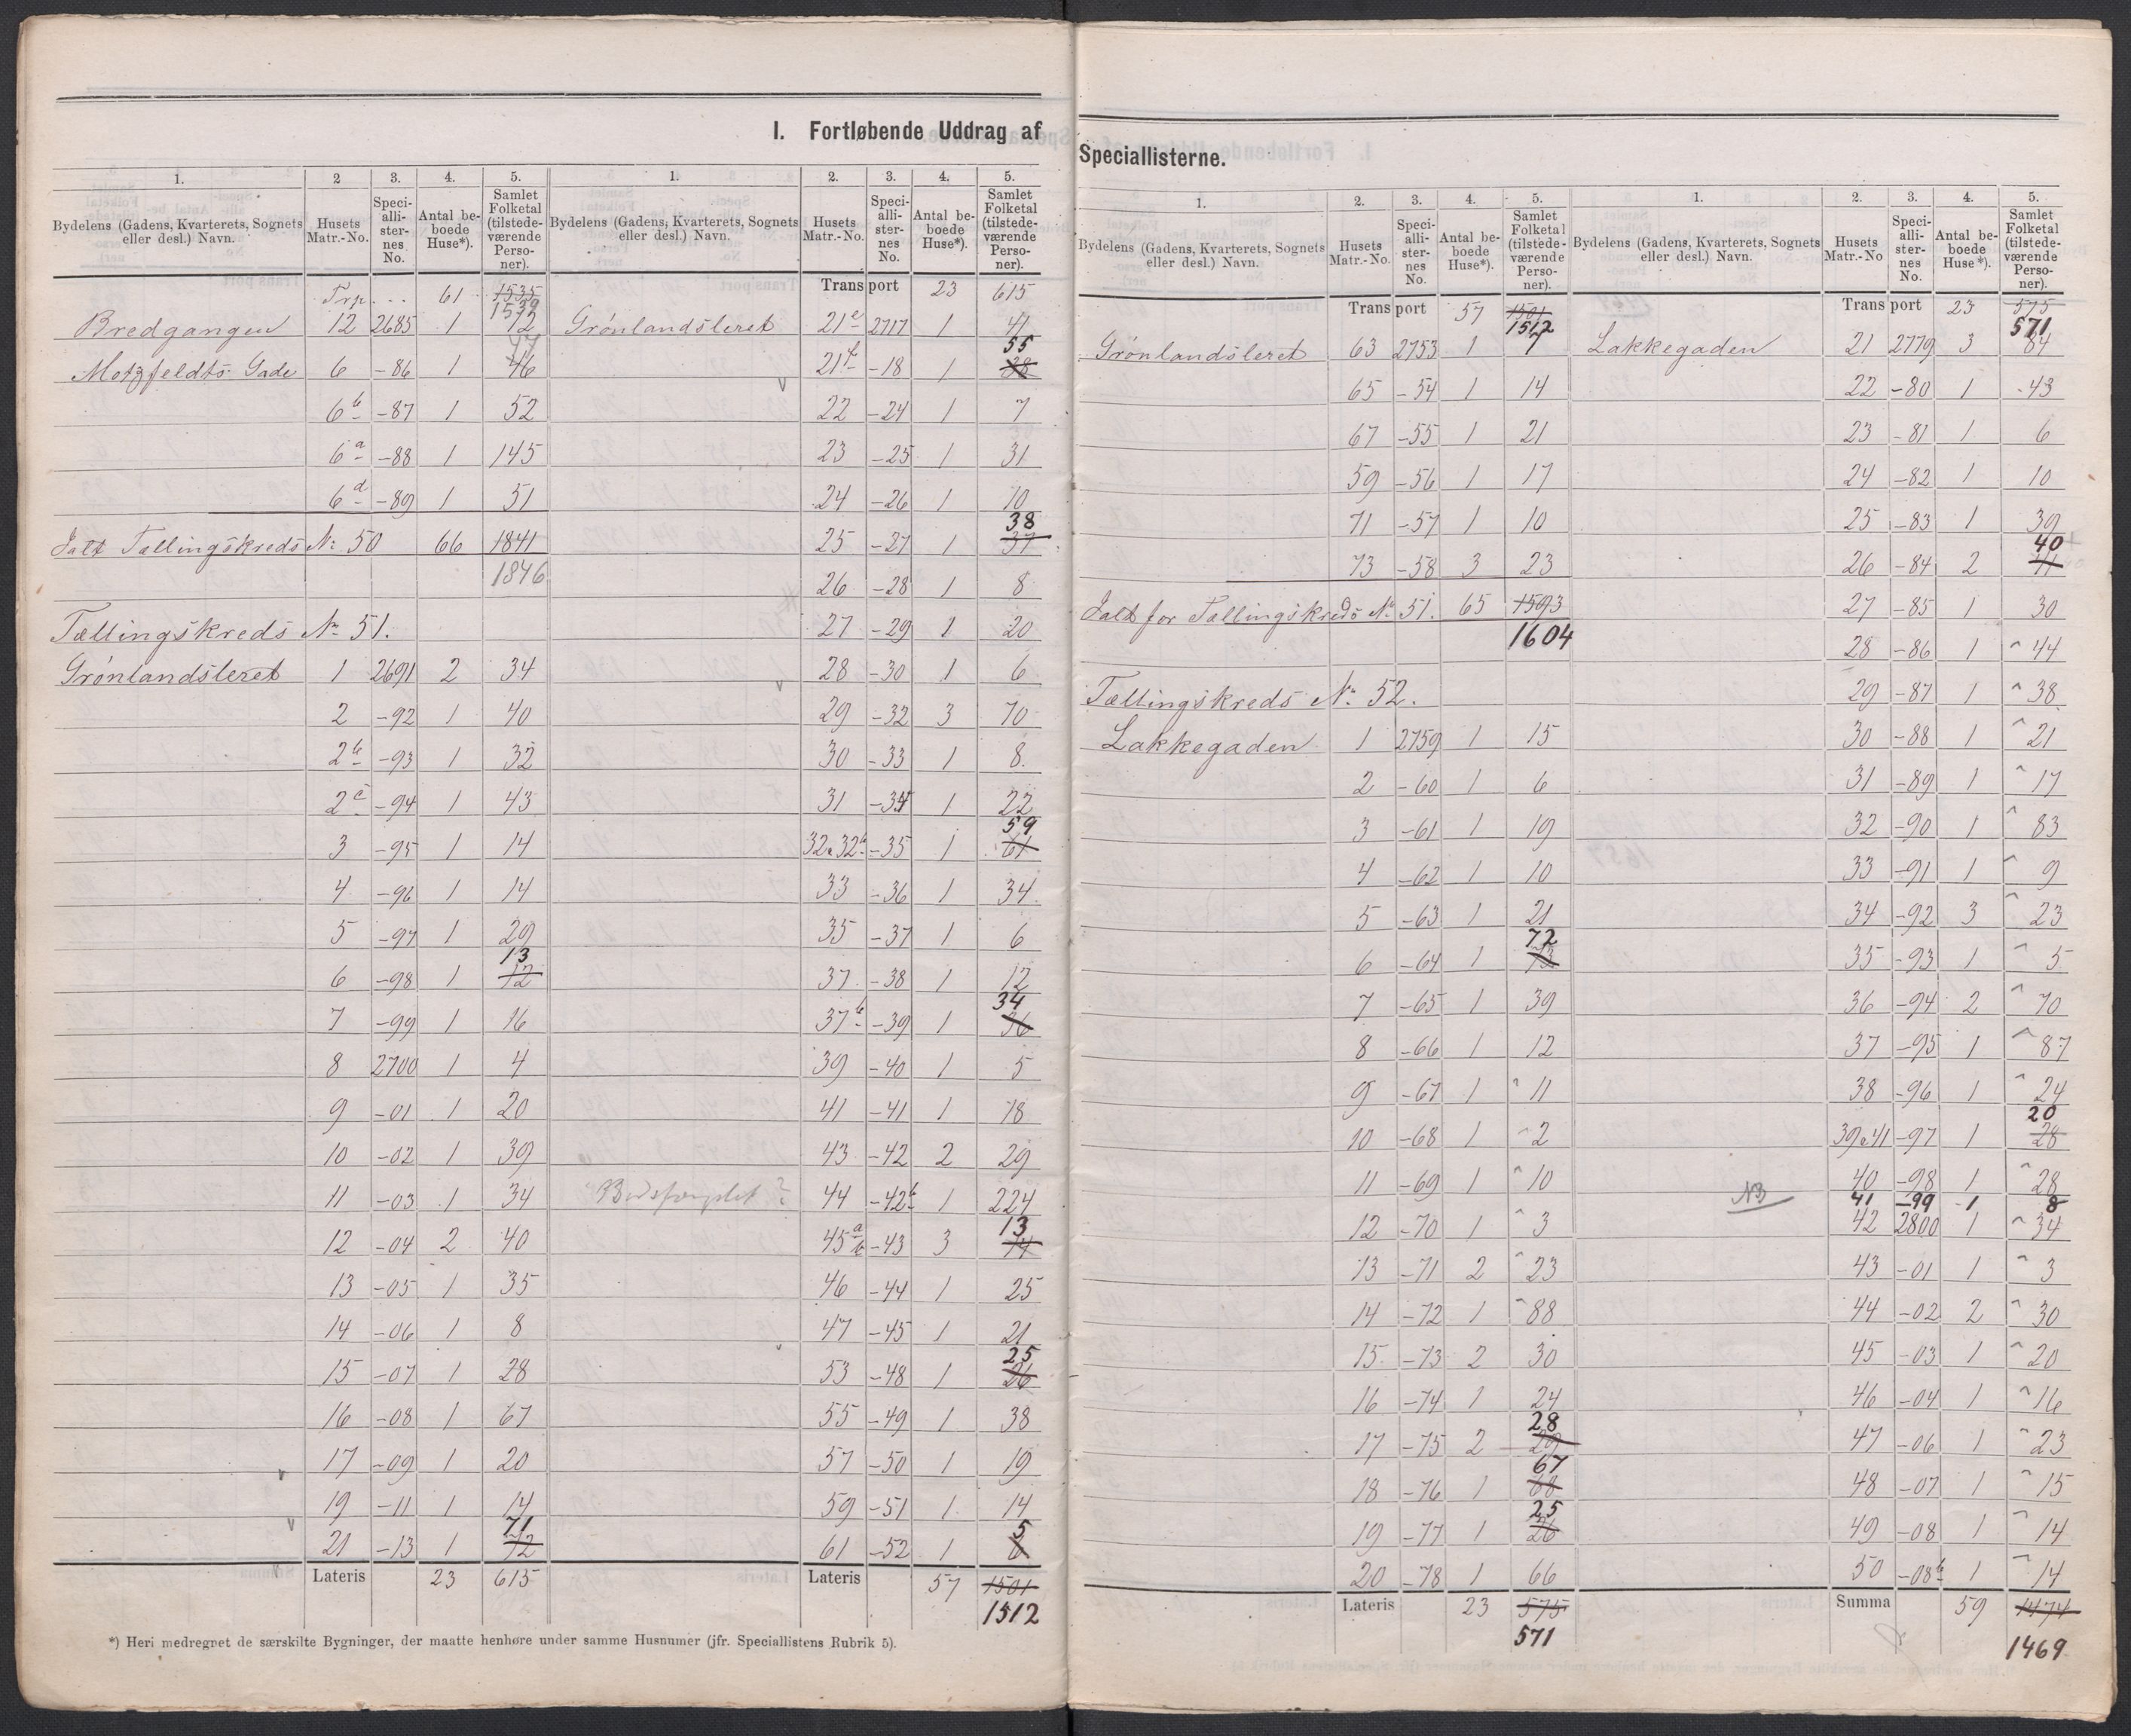 I. Fortløbende Uddrag af
1. 2 3. 4. 5.
Bydelens (Gadens, Kvarterets, Sognets eller desl.) Navn. Husets Matr.-No. Speciallisternes No. Antal beboede Huse*). Samlet Folketal (tilstedeværende Personer).
Trp. .. 61 1535 1539
Bredgangen 12 2685 1 12
Motzfeldts Gade 6 -86 1 46 47
6b -87 1 52
6a -88 1 145
6d -89 1 51
Ialt Tællingskreds No. 50 66 1841
1846
Tællingskreds No. 51.
Grønlandsleret 1 2691 2 34
2 -92 1 40
2b -93 1 32
2c -94 1 43
3 -95 1 14
4 -96 1 14
5 -97 1 29
6 -98 1 12 13
7 -99 1 16
8 2700 1 4
9 -01 1 20
10 -02 1 39
11 -03 1 34
12 -04 2 40
13 -05 1 35
14 -06 1 8
15 -07 1 28
16 -08 1 67
17 -09 1 20
19 -11 1 14
21 -13 1 72 71
Lateris 23 615
1. 2. 3. 4. 5.
Bydelens (Gadens, Kvarterets, Sognets eller desl.) Navn. Husets Matr.-No. Speciallisternes No. Antal beboede Huse*). Samlet Folketal (tilstedeværende Personer).
Transport 23 615
Grønlandsleret 21e 2717 1 41
21f -18 1 38 55
22 -24 1 7
23 -25 1 31
24 -26 1 10
25 -27 1 37 38
26 -28 1 8
27 -29 1 20
28 -30 1 6
29 -32 3 70
30 -33 1 8.
31 -34 1 22
32 & 32b -35 1 61 59
33 -36 1 34
35 -37 1 6
37 -38 1 12
37b -39 1 36 34
39 -40 1 5
41 -41 1 18
43 -42 2 29
44 -42b 1 224
45a b -43 3 14 13
46 -44 1 25
47 -45 1 21
53 -48 1 26 25
55 -49 1 38
57 -50 1 19
59 -51 1 14
61 -52 1 6 5
Lateris 57 1501
1512
*) Heri medregnet de særskilte Bygninger, der maatte henhøre under samme Husnumer (jfr. Speciallistens Rubrik 5).
Speciallisterne.
1. 2. 3. 4. 5.
Bydelens (Gadens, Kvarterets, Sognets eller desl.) Navn. Husets Matr.-No. Speciallisternes No. Antal beboede Huse*). Samlet Folketal (tilstedeværende Personer).
Transport 57 1501 1512
Grønlandsleret 63 2753 1 7
65 -54 1 14
67 -55 1 21
59 -56 1 17
71 -57 1 10
73 -58 3 23
Ialt for Tællingskreds No. 51. 65 1593
1604
Tællingskreds No. 52.
Lakkegaden 1 2759 1 15
2 -60 1 6
3 -61 1 19
4 -62 1 10
5 -63 1 21
6 -64 1 73 72
7 -65 1 39
8 -66 1 12
9 -67 1 11
10 -68 1 2
11 -69 1 10
12 -70 1 3
13 -71 2 23
14 -72 1 88
15 -73 2 30
16 -74 1 24
17 -75 2 29 28
18 -76 1 68 67
19 -77 1 26 25
20 -78 1 66
Lateris 23 575
571
1. 2. 3. 4. 5.
Bydelens (Gadens, Kvarterets, Sognets eller desl.) Navn. Husets Matr.-No Speciallisternes No. Antal beboede Huse*). Samlet Folketal (tilstedeværende Personer).
Transport 23 575 571
Lakkegaden 21 2779 3 84
22 -80 1 43
23 -81 1 6
24 -82 1 10
25 -83 1 39
26 -84 2 41 40
27 -85 1 30
28 -86 1 44
29 -87 1 38
30 -88 1 21
31 -89 1 17
32 -90 1 83
33 -91 1 9
34 -92 3 23
35 -93 1 5
36 -94 2 70
37 -95 1 87
38 -96 1 24
39 & 41 -97 1 28 20
40 -98 1 28
NB 41 -99 1 8
42 2800 1 34
43 -01 1 3
44 -02 2 30
45 -03 1 20
46 -04 1 16
47 -06 1 23
48 -07 1 15
49 -08 1 14
50 -08b 1 14
Summa 59 1474
1469